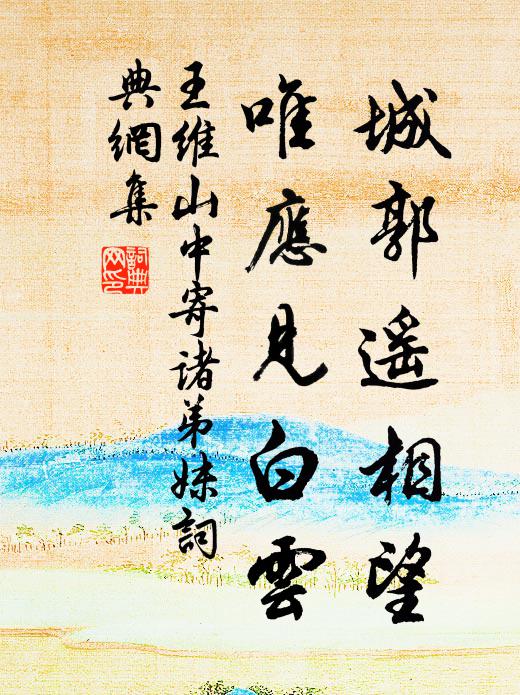 城郭遥相望
唯應見白雲
王維山中寄诸弟妹詞
典網集
詞典
网印